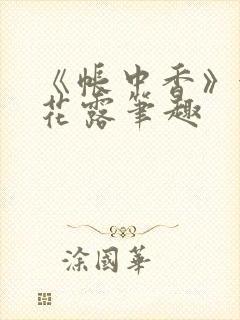 《帐中香》
花露笔趣
涂国华